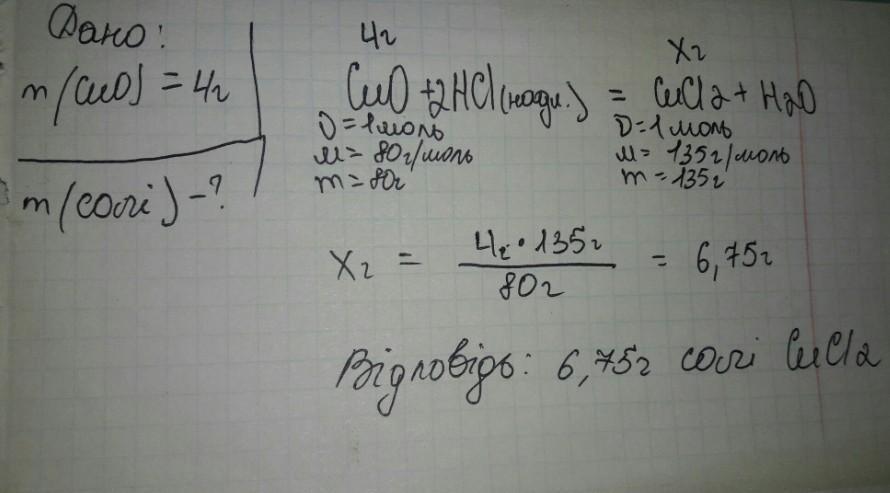 Дано:
m(CuO) = 4г
m(солі) - ?
4г
Xг
CuO + 2HCl (надл.) = CuCl2 + H2O
υ = 1 моль
υ = 1 моль
M = 80г/моль
M = 135г/моль
m = 80г
m = 135г
Xг = 4г · 135г / 80г = 6,75г
Відповідь: 6,75г солі CuCl2